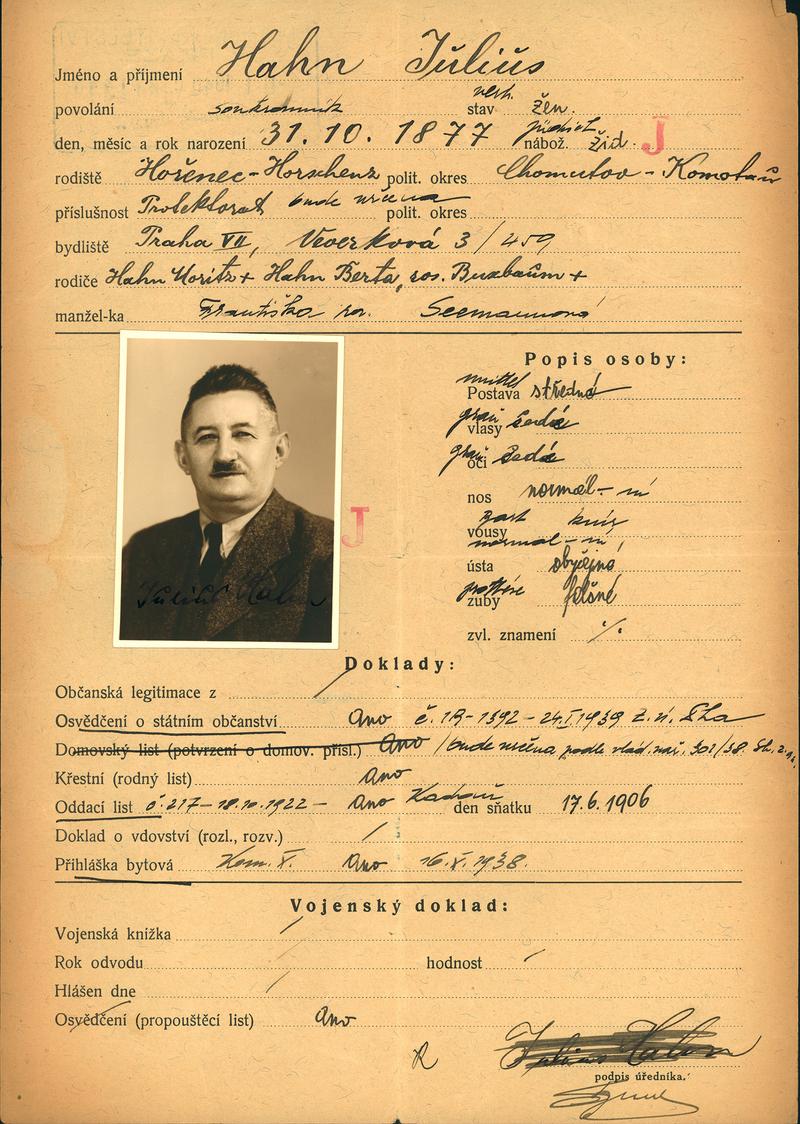 Jméno a příjmení Hahn Julius
povolání soukromník stav verh. žen.
den, měsíc a rok narození 31. 10. 1877 nábož. jüdisch žid. J
rodiště Hořenec-Horschenz polit. okres Chomutov - Komotau
příslušnost Protektorat bude určena polit. okres
bydliště Praha VII, Veverková 3/459
rodiče Hahn Moritz + Hahn Berta, roz. Buxbaum +
manžel-ka Františka roz. Seemannová
Popis osoby:
Postava mittel střední
vlasy grau šedé
oči grau šedé
nos normal - ní
vousy knír
normal - ní
ústa obyčejná
zuby
zvl. znamení ./.
J
Julius Hahn
Doklady:
Občanská legitimace z
Osvědčení o státním občanství Ano č. 19-1392 - 24.I.1939 Z.ú.
Domovský list (potvrzení o domov. přísl.) Ano / bude určena podle vlád. nař. /38. Sb. z. n.
Křestní (rodný list) Ano
Oddací list č. 217 - 18.10.1922 - Ano Kadaň den sňatku 17.6.1906
Doklad o vdovství (rozl., rozv.) /
Přihláška bytová Kom. X. Ano 16.X.1938.
Vojenský doklad:
Vojenská knížka /
Rok odvodu hodnost
Hlášen dne /
Osvědčení (propouštěcí list) Ano
R Julius Hahn
podpis úředníka.